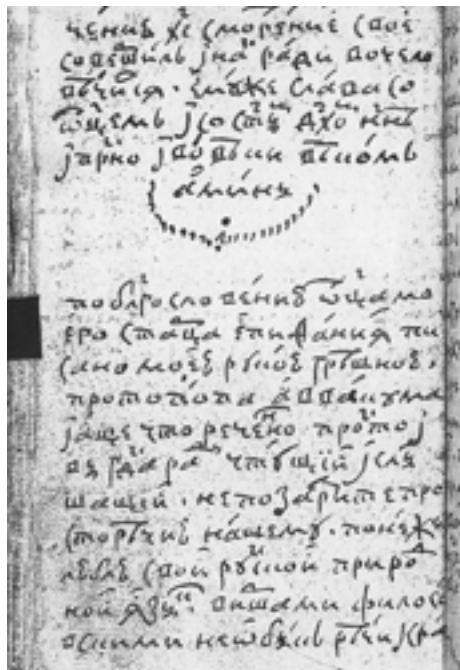 чение хс̑ смотрение свое
совершилъ і насъ ради вочело
вѣчися. емуже слава со
ѿцемъ і со ст҃ымъ дх҃омъ нн҃ѣ
і прⷭ҇но і во вѣки вѣкомъ
аминь
по блг҃ословению ѿца мо
его старца епифания пи
сано моею рукою грѣшною
протопопа аввакума
і аще что речено просто і
вы гдⷭ҇а ради чтущїи і слы
шащїи. не позазрите про
сторѣчию нашему. понеже
люблю свой руской природ
ной языкъ. виршами филосо
вскими не ѡбыкъ рѣчи кра